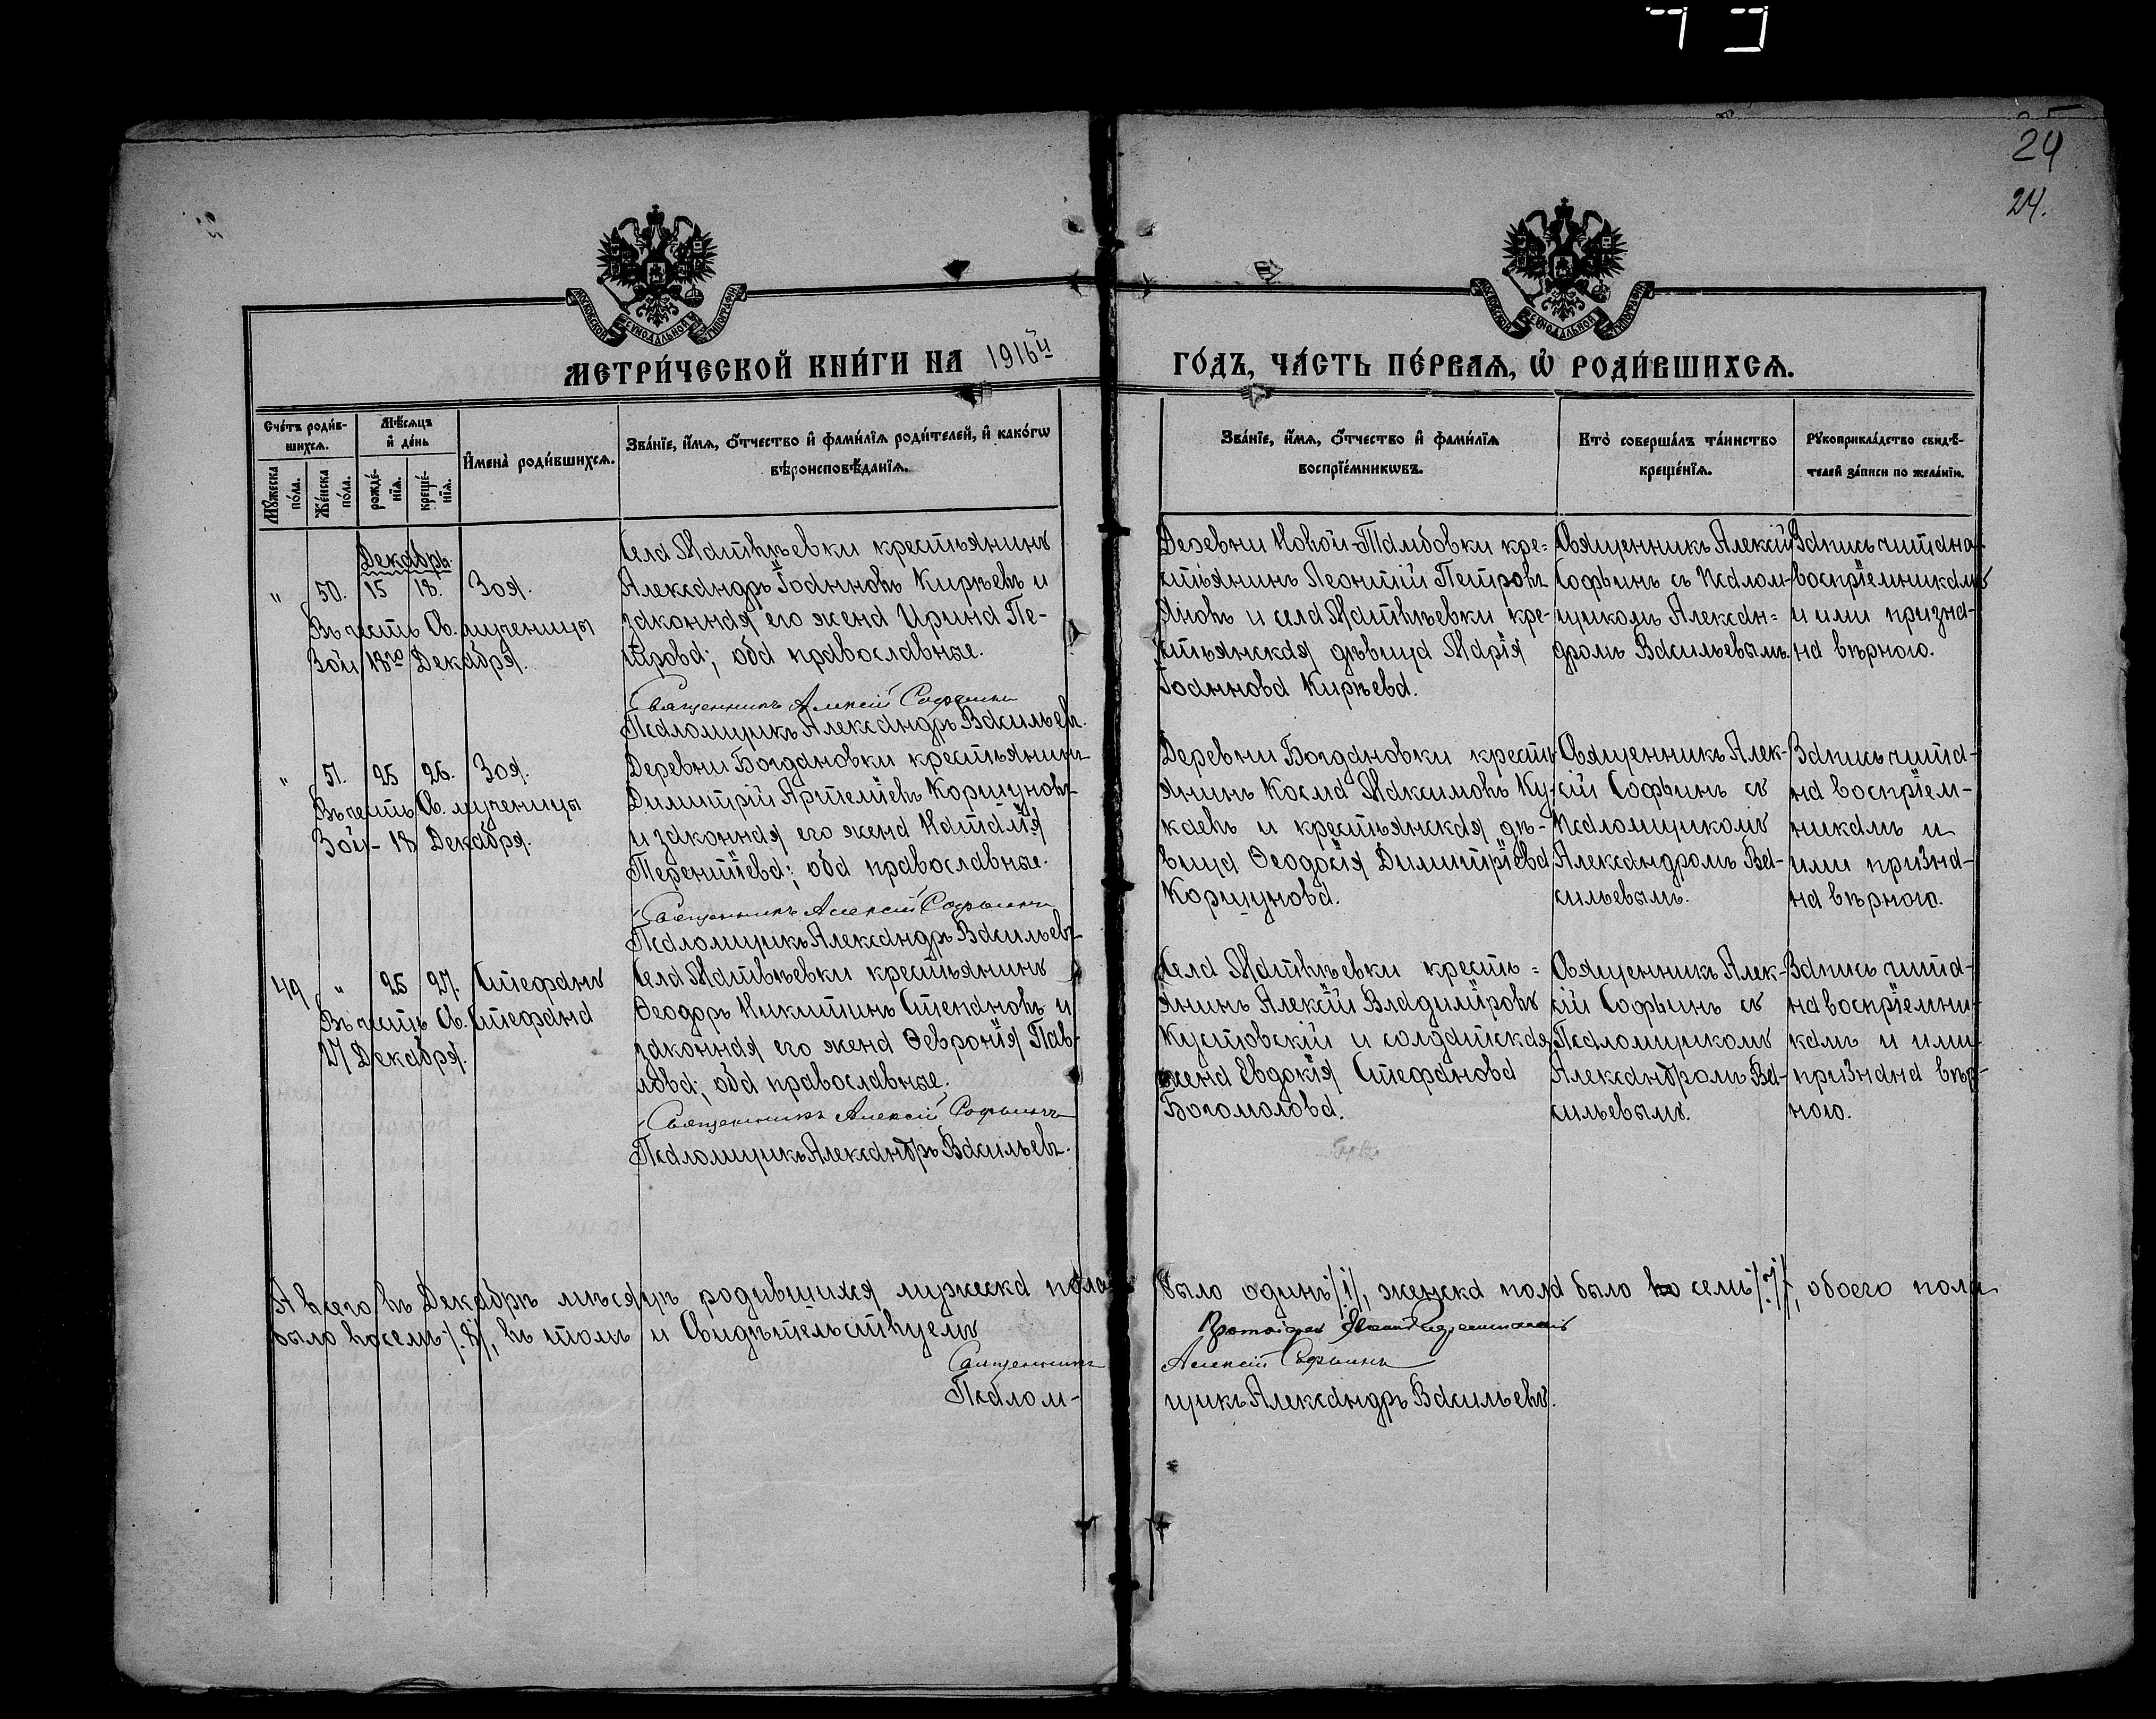 24
24.
МОСКОВСКОЙ СѴНОДАЛЬНОЙ ТИПОГРАФІИ
МОСКОВСКОЙ СѴНОДАЛЬНОЙ ТИПОГРАФІИ
МЕТРИ́ЧЕСКОЙ КНИ́ГИ НА 1916й
ГО́ДЪ, ЧА́СТЬ ПЕ́РВАЯ, Ѡ҆ РОДИ́ВШИХСЯ.
Сче́тъ роди́в-
шихся.
Мѣ́сяцъ
и҆ де́нь
Мꙋ́жеска
по́ла.
Же́нска
по́ла.
рожде́-
нїя.
креще́-
нїя.
И҆мена̀ роди́вшихся.
Зва́нїе, и҆́мя, ѻ҆́тчество и҆ фами́лїя роди́телей, и҆ како́гѡ
вѣроисповѣ́данїя.
Зва́нїе, и҆́мя, ѻ҆́тчество и҆ фами́лїя
воспрїе́мникѡвъ.
Кто̀ соверша́лъ та́инство
креще́нїя.
Рꙋкоприкла́дство свидѣ́-
телей за́писи по жела́нїю.
Декабрь.
" 50. 15 18. Зоя.
Въ честь Св. мученицы
Зои 18го Декабря.
Села Матвѣевки крестьянинъ
Александръ Іоанновъ Кирѣевъ и
законная его жена Ирина Пе-
трова; оба православные.
Священникъ Алексій Софьинъ
Псаломщикъ Александръ Васильевъ.
Деревни Новой-Тамбовки кре=
стьянинъ Леонтій Петровъ
Яновъ и села Матвѣевки кре-
стьянская дѣвица Марія
Іоаннова Кирѣева.
Священникъ Алексій
Софьинъ съ псалом-
щикомъ Алексан=
дромъ Васильевымъ.
Запись читана
воспріемникамъ
и ими призна-
на вѣрною.
" 51. 25 26. Зоя.
Въ честь Св. мученицы
Зои - 18 Декабря.
Деревни Богдановки крестьянинъ
Димитрій Артеміевъ Коршуновъ
и законная его жена Наталія
Терентіева; оба православные.
Священникъ Алексій Софьинъ
Псаломщикъ Александръ Васильевъ
Деревни Богдановки кресть-
янинъ Косма Максимовъ Ку-
каевъ и крестьянская дѣ-
вица Ѳеодосія Димитріева
Коршунова.
Священникъ Алек-
сій Софьинъ съ
псаломщикомъ
Александромъ Ва-
сильевымъ.
Запись чита-
на воспріем-
никамъ и
ими призна-
на вѣрною.
49 " 25 27. Стефанъ
Въ честь Св. Стефана
27 Декабря.
Села Матвѣевки крестьянинъ
Ѳеодоръ Никитинъ Степановъ и
законная его жена Ѳевронія Пав-
лова; оба православные.
Священникъ Алексій Софьинъ
Псаломщикъ Александръ Васильевъ.
Села Матвѣевки кресть=
янинъ Алексій Владиміровъ
Кустовскій и солдатская
жена Евдокія Стефанова
Богомолова.
Священникъ Алек-
сій Софьинъ съ
Псаломщикомъ
Александромъ Ва-
сильевымъ.
Запись чита-
на воспріемни-
камъ и ими
признана вѣр-
ною.
А всего въ Декабрѣ мѣсяцѣ родившихся мужеска пола было одинъ /1/, женска пола было семь /7/, обоего пола
было восемь /8/, въ томъ и свидѣтельствуемъ
Протоіерей
Священникъ Алексій Софьинъ
Псалом-щикъ Александръ Васильевъ.